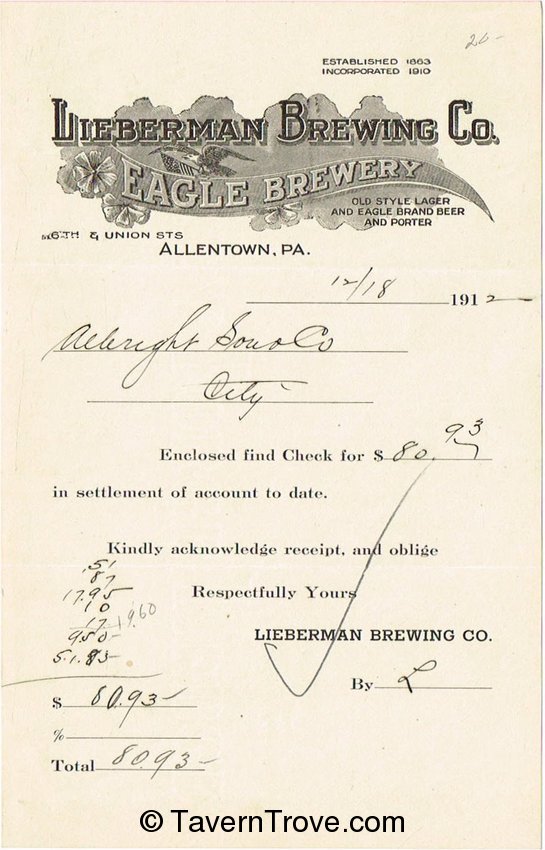 20-
ESTABLISHED 1863
INCORPORATED 1910
LIEBERMAN BREWING CO.
EAGLE BREWERY
OLD STYLE LAGER
AND EAGLE BRAND BEER
AND PORTER
6TH & UNION STS
ALLENTOWN, PA.
12/18 1912
Albright Son & Co
City
Enclosed find Check for $ 80.93
in settlement of account to date.
Kindly acknowledge receipt, and oblige
.51
87
17.95
Respectfully Yours
10
17 19.60
9.50
LIEBERMAN BREWING CO.
51.83
By L
$ 80.93
%
Total 80.93
© TavernTrove.com